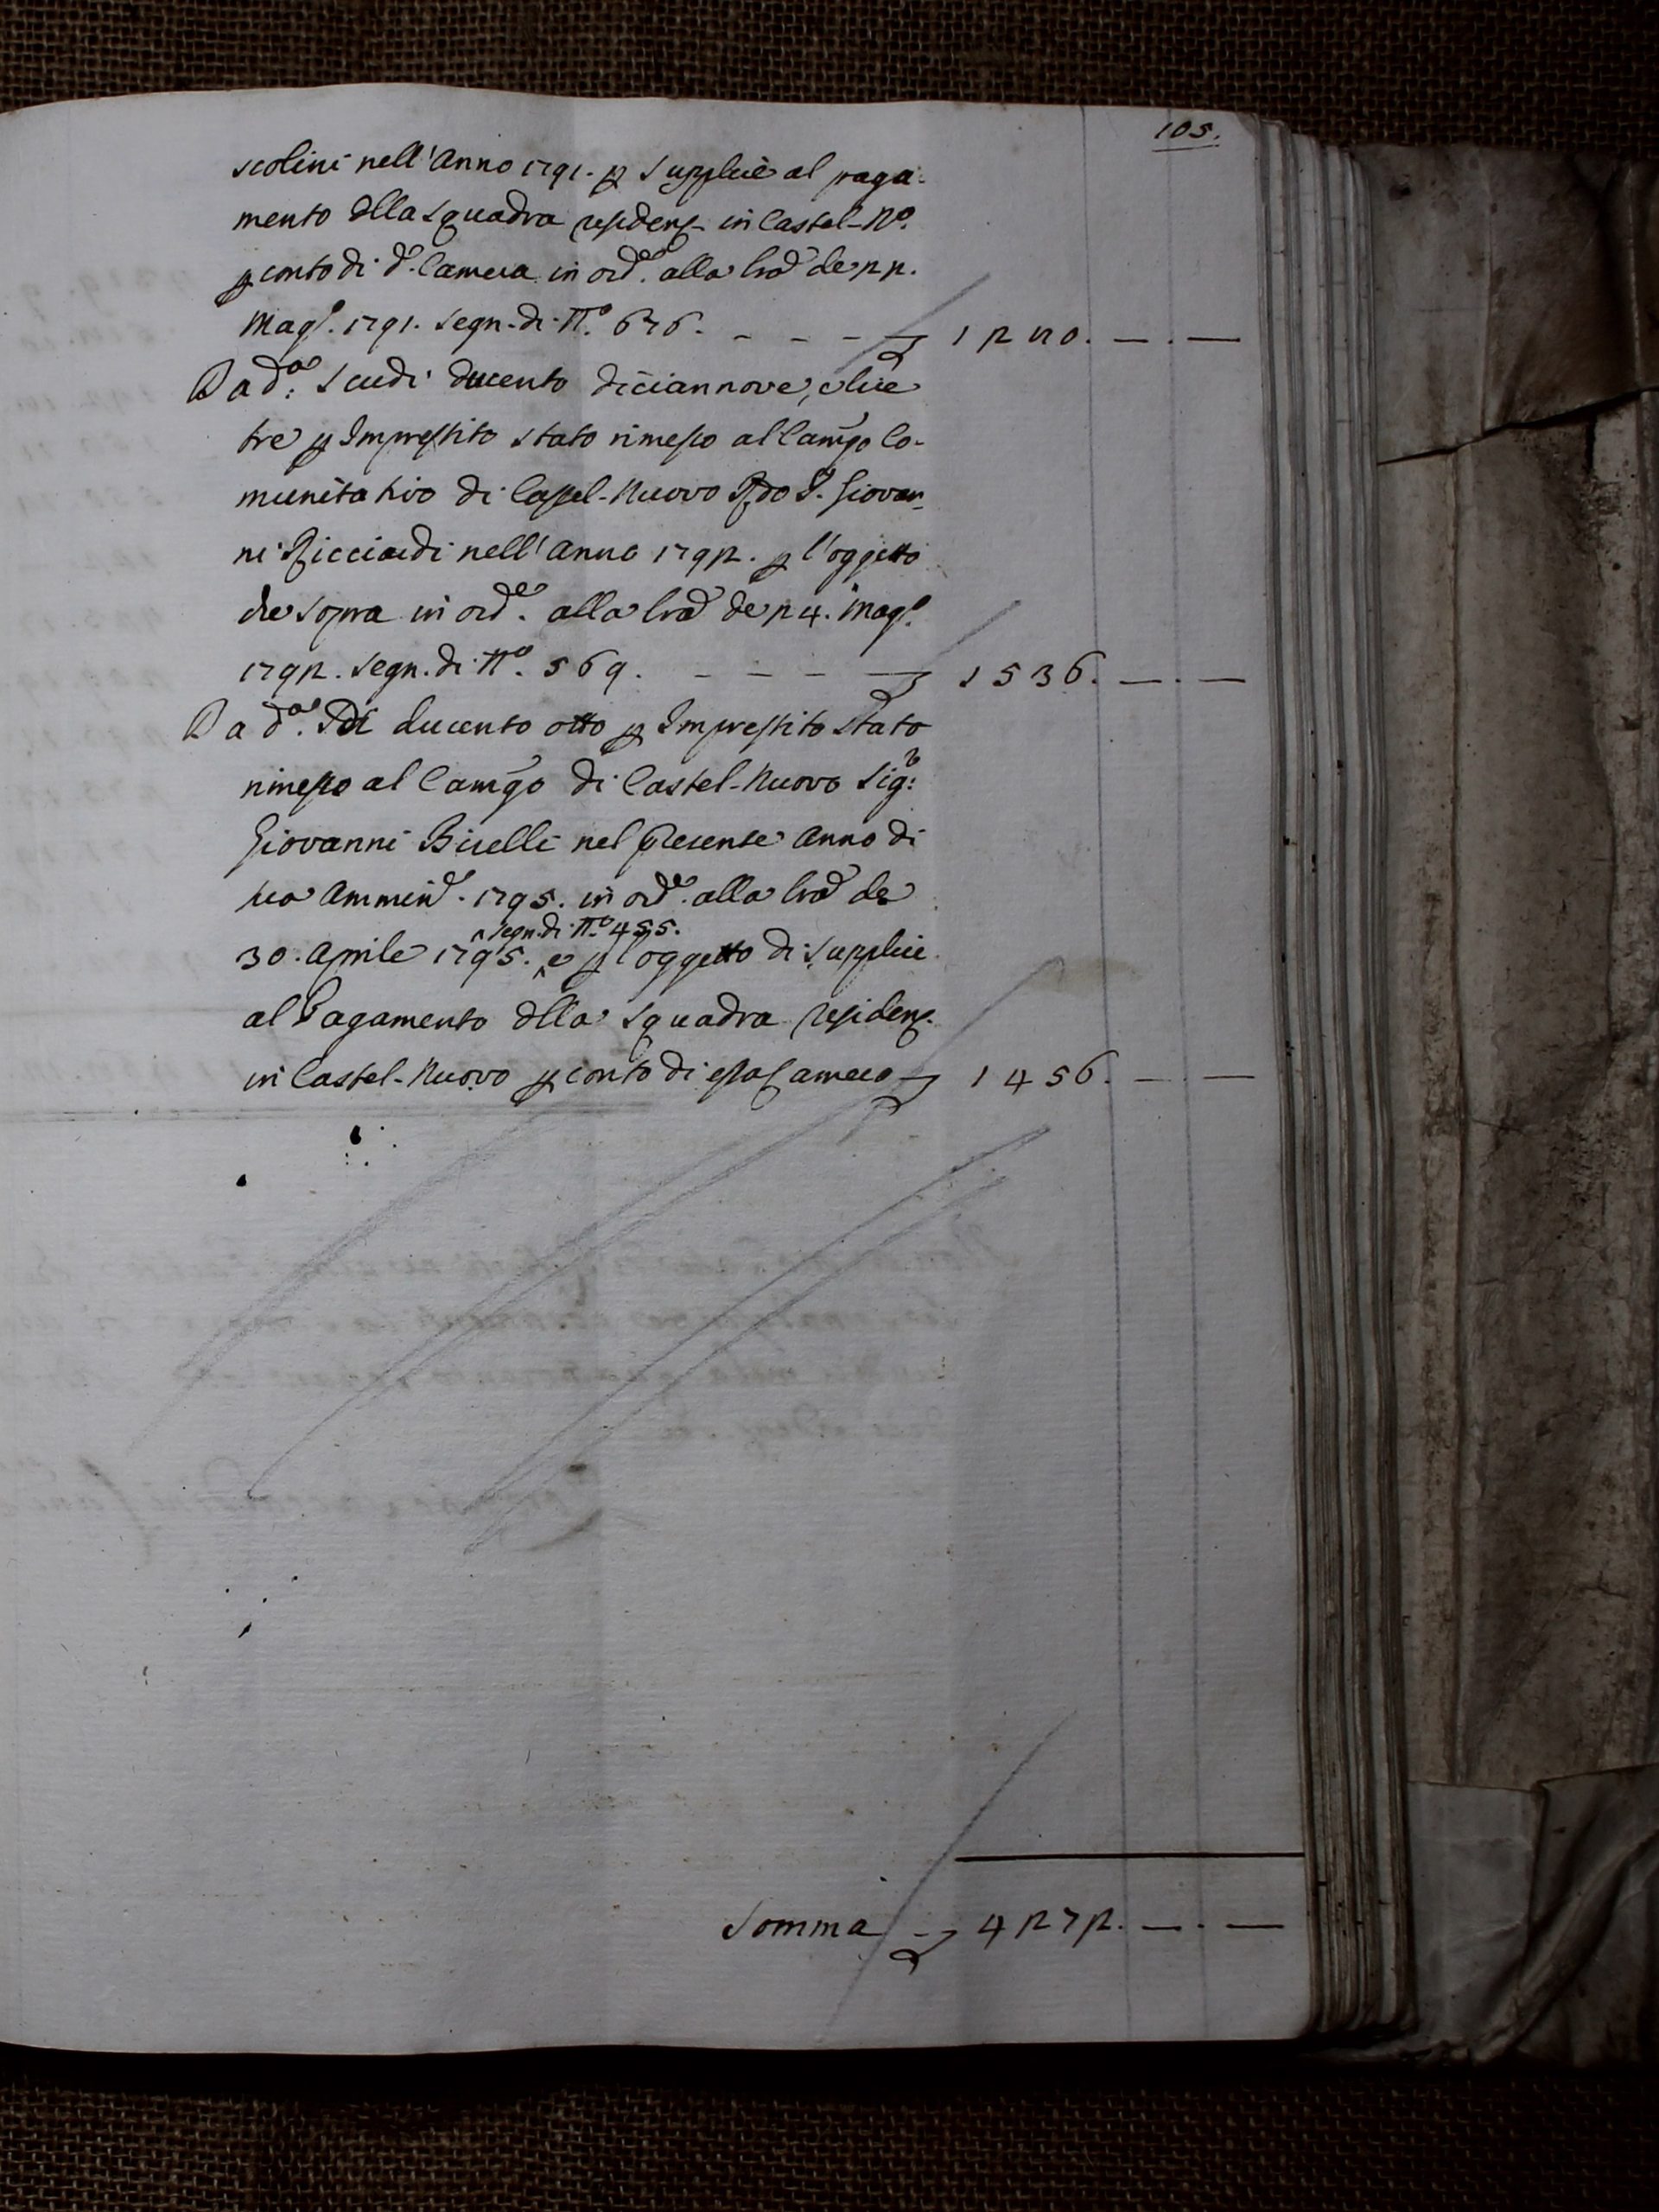 105.
scolini nell'Anno 1791. p Supplire al paga-
mento dlla Squadra residenz. in Castel-No.
p conto di d.a Camera in ord.e alla lrã de 22.
Mag.o 1791. Segn. di N.o 676. - - - - 1280. —.—
Da d.a Scudi ducento diciannove, e lire
tre p Imprestito stato rimesso al Camgo Co-
munitativo di Castel-Nuovo S. Giovan-
ni Ricciardi nell'Anno 1792. p l'oggetto
che sopra in ord.e alla lrã de 24. Mag.o
1792. Segn. di N.o 569. - - - - 1536. —.—
Da d.a Sdi ducento otto p Imprestito stato
rimesso al Camgo di Castel-Nuovo Sig.r
Giovanni Biselli nel presente Anno di
sua Ammind. 1795. in ord.e alla lrã de
Segn. di N.o 455.
30. Aprile 1795. e p l'oggetto di Supplire
al Pagamento dlla Squadra residenz.
in Castel-Nuovo p conto di essa Camera 1456. —.—
Somma 4272. —.—